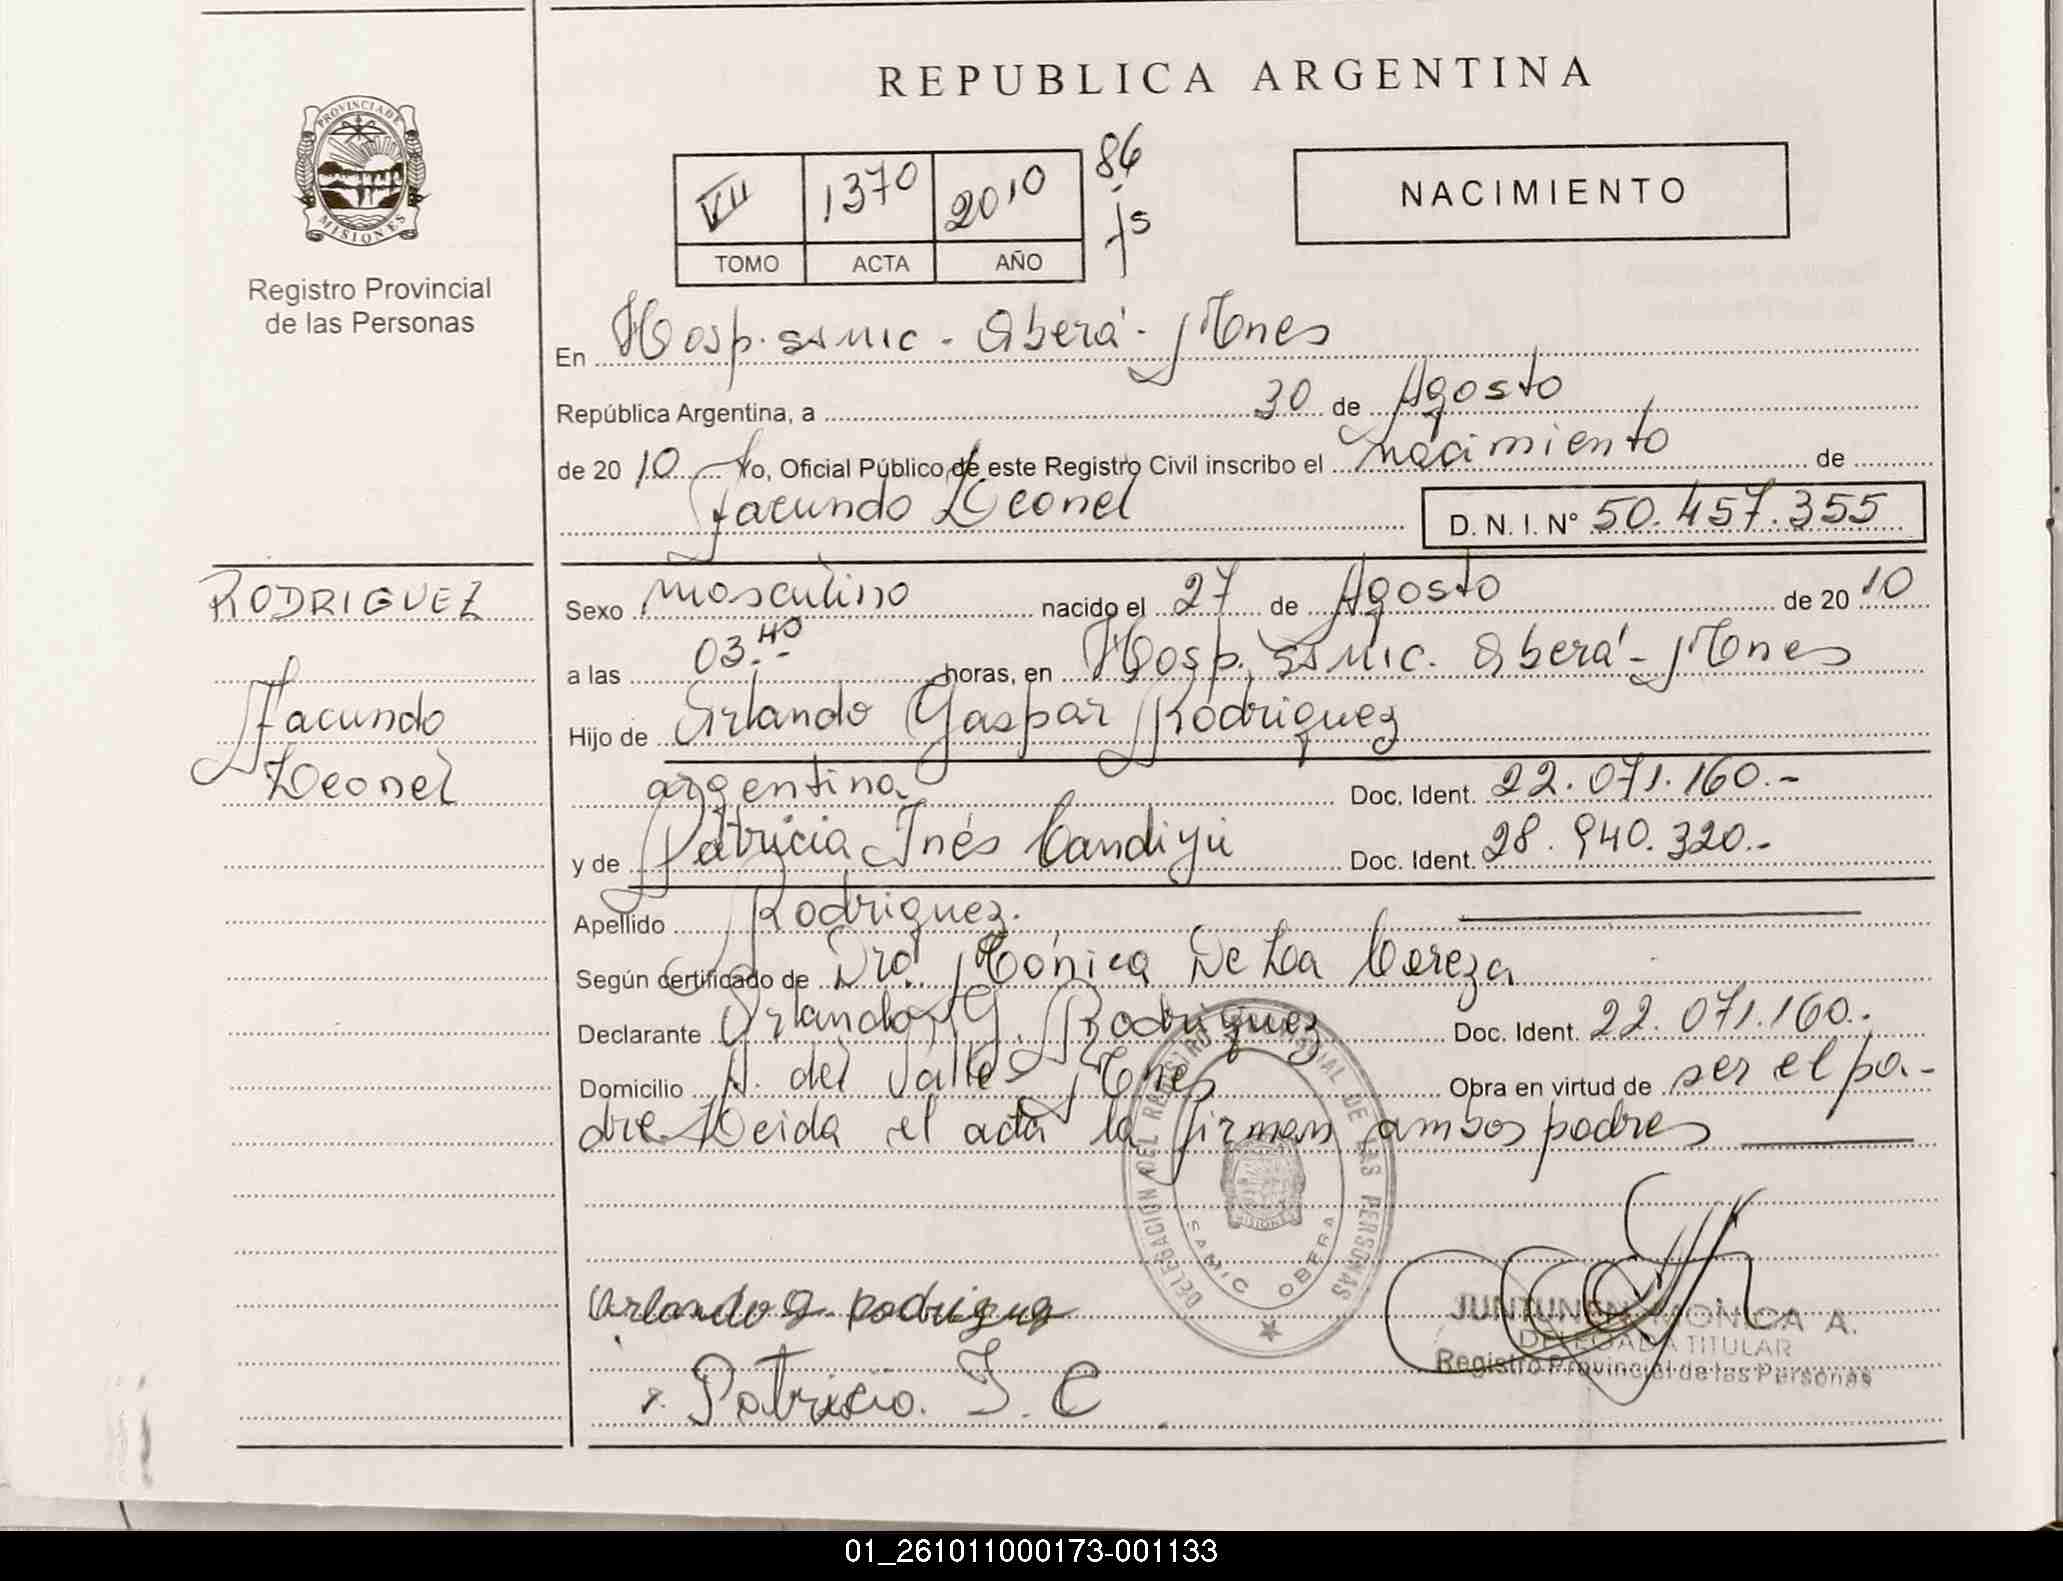 REPUBLICA ARGENTINA
PROVINCIA DE MISIONES
Registro Provincial
de las Personas
VII 1370 2010 86
TOMO ACTA AÑO
NACIMIENTO
En Hosp. SAMIC - Oberá - Mnes
República Argentina, a 30 de Agosto
de 2010 Yo, Oficial Público de este Registro Civil inscribo el nacimiento de
Facundo Leonel D. N. I. N° 50.457.355
RODRIGUEZ
Facundo
Leonel
Sexo masculino nacido el 27 de Agosto de 2010
a las 03.40 horas, en Hosp. SAMIC. Oberá - Mnes
Hijo de Orlando Gaspar Rodriguez
argentina Doc. Ident. 22.071.160.-
y de Patricia Inés Candiyú Doc. Ident. 28.940.320.-
Apellido Rodriguez.
Según certificado de Dra. Mónica De La Cereza
Declarante Orlando G. Rodriguez Doc. Ident. 22.071.160.-
Domicilio A. del Valle Mnes Obra en virtud de ser el pa-
dre. Leida el acta la firman ambos padres
DELEGACION DEL REGISTRO PROVINCIAL DE LAS PERSONAS
MISIONES
SAMIC OBERA
Orlando G. Rodriguez
Patricia. I. C
JUNTUNEN MONICA A.
DELEGADA TITULAR
Registro Provincial de las Personas
01_261011000173-001133